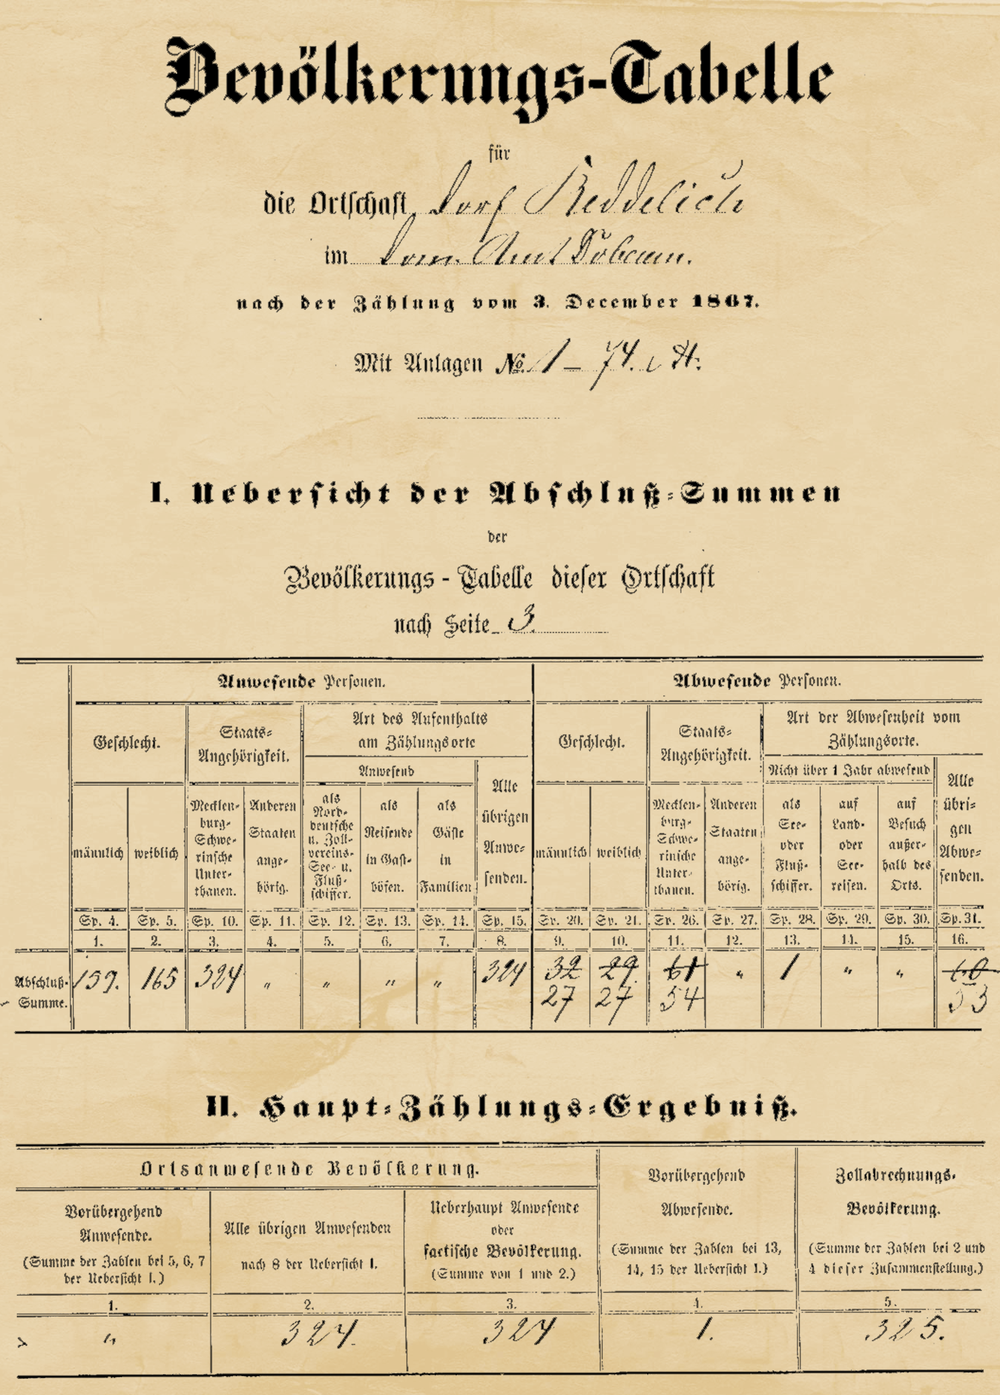 Bevölkerungs-Tabelle
für
die Ortschaft Dorf Reddelich
im Dom. Amt Doberan.
nach der Zählung vom 3. December 1867.
Mit Anlagen No. 1 – 74.
I. Uebersicht der Abschluß-Summen
der
Bevölkerungs-Tabelle dieser Ortschaft
nach Seite 3.
Anwesende Personen. Abwesende Personen.
Geschlecht. Staats-Angehörigkeit. Art des Aufenthalts am Zählungsorte Geschlecht. Staats-Angehörigkeit. Art der Abwesenheit vom Zählungsorte.
Anwesend Nicht über 1 Jahr abwesend
männlich weiblich Mecklen-burg-Schwe-rinsche Unter-thanen. Anderen Staaten ange-hörig. als Nord-deutsche u. Zoll-vereins-See- u. Fluß-schiffer. als Reisende in Gast-höfen. als Gäste in Familien Alle übrigen Anwe-senden. männlich weiblich Mecklen-burg-Schwe-rinsche Unter-thanen. Anderen Staaten ange-hörig. als See- oder Fluß-schiffer. auf Land- oder See-reisen. auf Besuch außer-halb des Orts. Alle übri-gen Abwe-senden.
Sp. 4. Sp. 5. Sp. 10. Sp. 11. Sp. 12. Sp. 13. Sp. 14. Sp. 15. Sp. 20. Sp. 21. Sp. 26. Sp. 27. Sp. 28. Sp. 29. Sp. 30. Sp. 31.
1. 2. 3. 4. 5. 6. 7. 8. 9. 10. 11. 12. 13. 14. 15. 16.
Abschluß- 159. 165 324 „ „ „ „ 324 32 29 61 „ 1 „ „ 60
Summe. 27 27 54 53
II. Haupt-Zählungs-Ergebniß.
Ortsanwesende Bevölkerung. Vorübergehend Abwesende. Zollabrechnungs-Bevölkerung.
Vorübergehend Anwesende. Alle übrigen Anwesenden Ueberhaupt Anwesende oder factische Bevölkerung.
(Summe der Zahlen bei 5, 6, 7 der Uebersicht I.) nach 8 der Uebersicht I. (Summe von 1 und 2.) (Summe der Zahlen bei 13, 14, 15 der Uebersicht I.) (Summe der Zahlen bei 2 und 4 dieser Zusammenstellung.)
1. 2. 3. 4. 5.
„ 324. 324 1. 325.